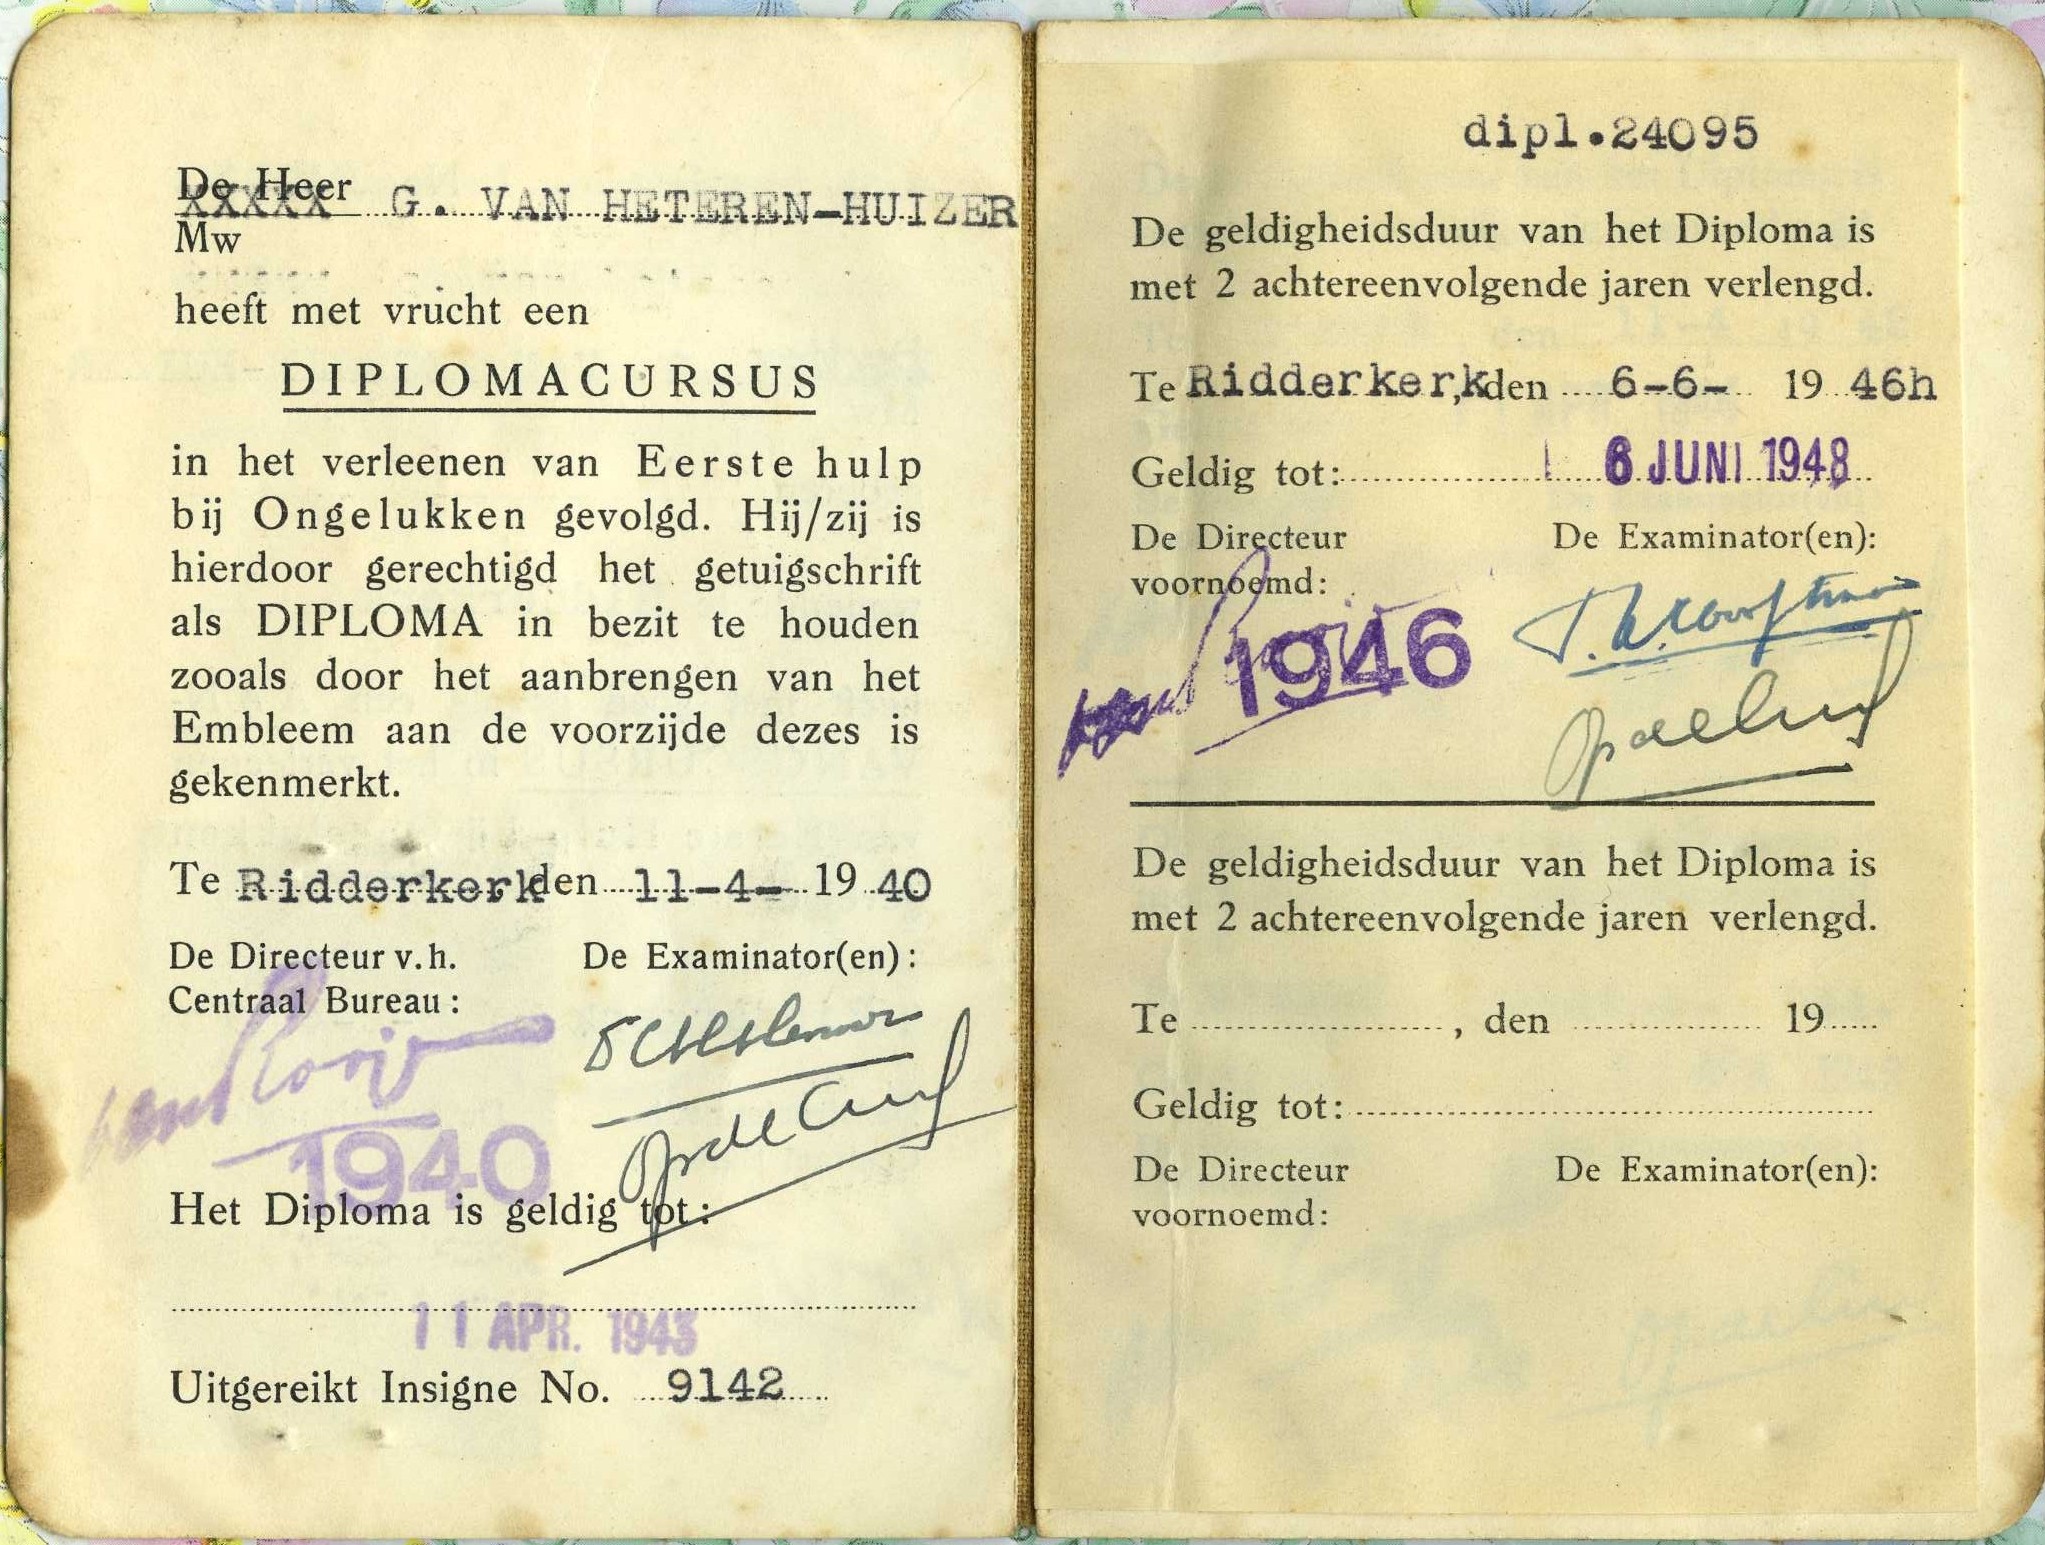 De Heer
XXXXX G. VAN HETEREN-HUIZER
Mw
heeft met vrucht een
DIPLOMACURSUS
in het verleenen van Eerste hulp
bij Ongelukken gevolgd. Hij/zij is
hierdoor gerechtigd het getuigschrift
als DIPLOMA in bezit te houden
zooals door het aanbrengen van het
Embleem aan de voorzijde dezes is
gekenmerkt.
Te Ridderkerk, den 11-4- 19 40
De Directeur v.h. De Examinator(en):
Centraal Bureau:
1940
Het Diploma is geldig tot:
11 APR. 1943
Uitgereikt Insigne No. 9142
dipl.24095
De geldigheidsduur van het Diploma is
met 2 achtereenvolgende jaren verlengd.
Te Ridderkerk, den 6-6- 19 46h
Geldig tot: 6 JUNI 1948
De Directeur De Examinator(en):
voornoemd:
1946
De geldigheidsduur van het Diploma is
met 2 achtereenvolgende jaren verlengd.
Te , den 19
Geldig tot:
De Directeur De Examinator(en):
voornoemd: